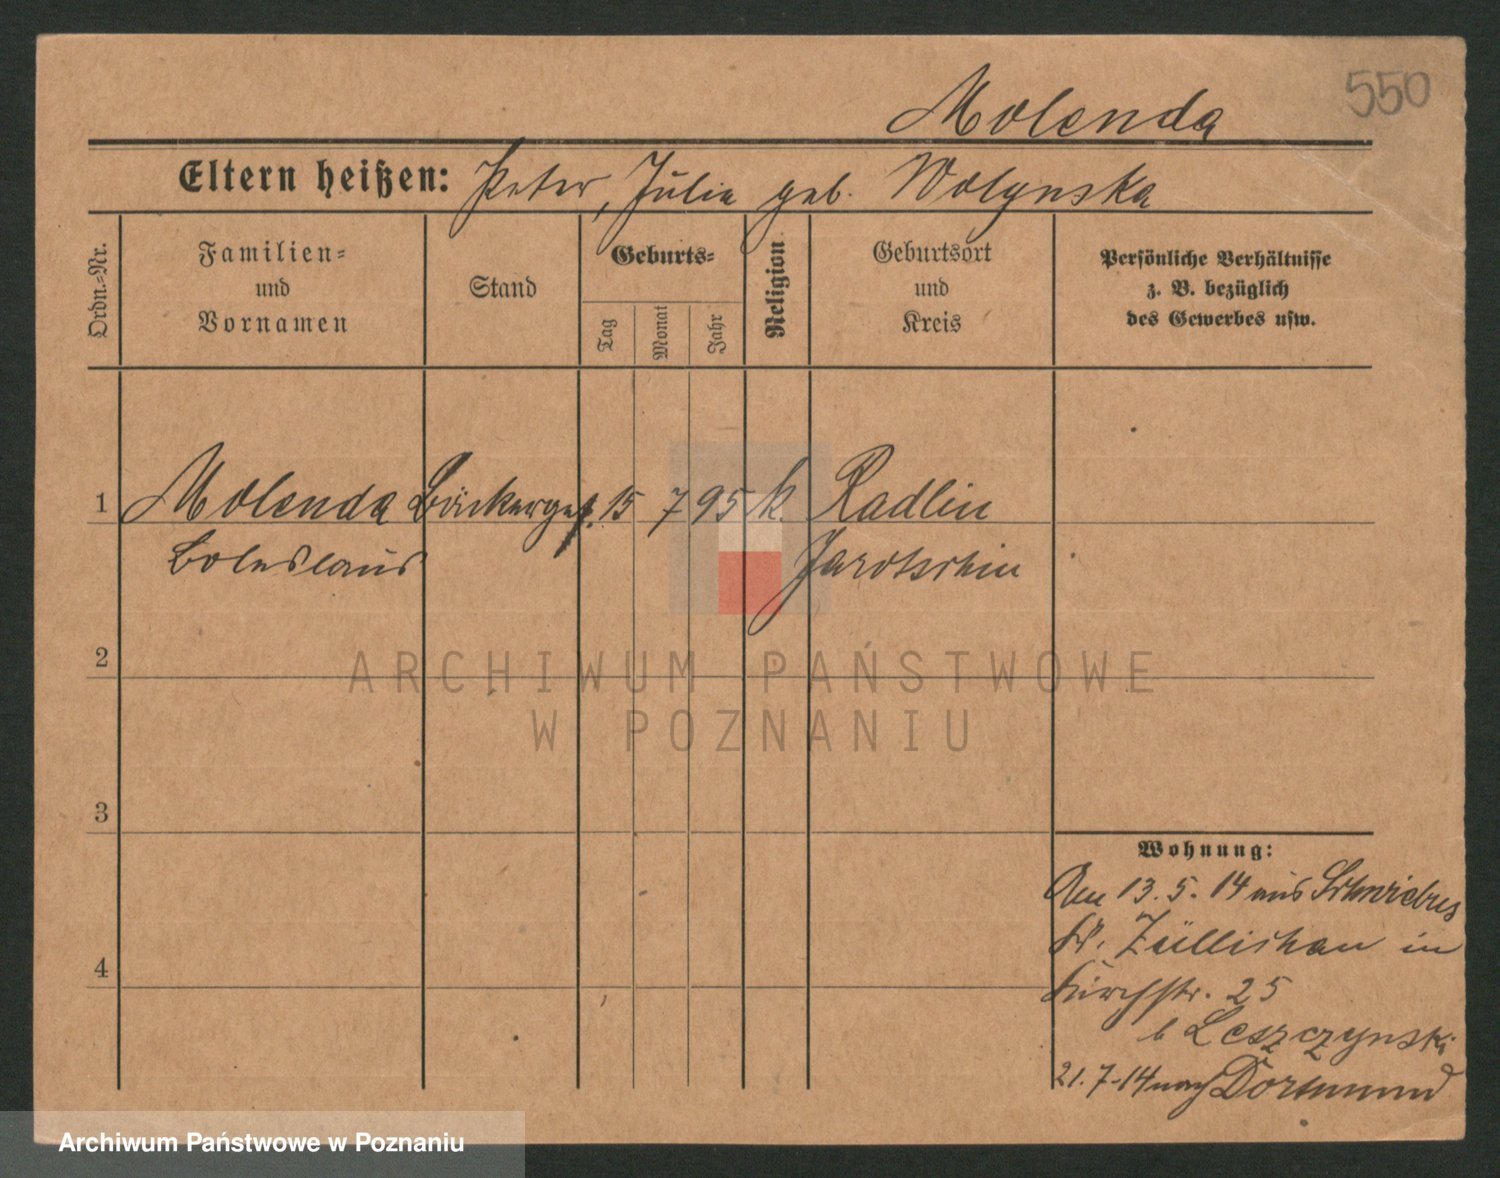 550
Molenda
Eltern heißen: Peter, Julie geb. Wolynska
Ordn.-Nr.
Familien-
und
Vornamen
Stand
Geburts-
Tag
Monat
Jahr
Religion
Geburtsort
und
Kreis
Persönliche Verhältnisse
z. B. bezüglich
des Gewerbes usw.
1 Molenda Bäckerges. 15 7 95 k. Radlin
Boleslaus Jarotschin
2
ARCHIWUM PAŃSTWOWE
W POZNANIU
3
Wohnung:
Am 13.5.14 aus Schwiebus
Kr. Züllichau in
4
Kirchstr. 25
b Leszczynski
21.7.14 nach Dortmund
Archiwum Państwowe w Poznaniu